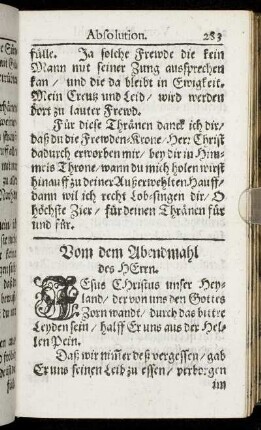 Absolution. 283
fülle. Ja solche Frewde die kein
Mann mit seiner Zung aussprechen
kan / und die da bleibt in Ewigkeit.
Mein Creutz und Leid / wird werden
dort zu lauter Frewd.
Für diese Thränen danck ich dir /
daß du die Frewden-Krone / Herr Christ
dadurch erworben mir / bey dir in Him-
mels Throne / wann du mich holen wirst
hinauff zu deiner Außerwehlten Hauff /
dann wil ich recht Lob-singen dir / O
höchste Zier / für deinen Thränen für
und für.
Vom dem Abendmahl
des HErrn.
JEsus Christus unser Hey-
land / der von uns den Gottes
Zorn wandt / durch das bittre
Leyden sein / halff Er uns aus der Hel-
len Pein.
Daß wir nim̃er deß vergessen / gab
Er uns seinen Leib zu essen / verborgen
im